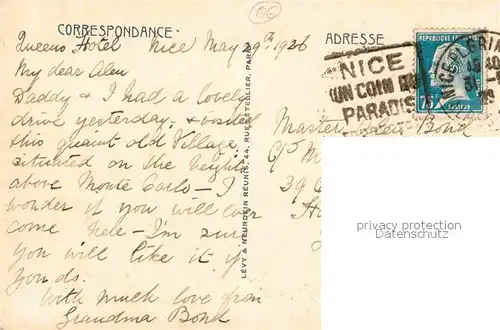 CORRESPONDANCE
ADRESSE
Queens Hotel Nice May 29th 1926
My dear Alen
Daddy & I had a lovely
drive yesterday, & visited
this quaint old Village
situated on the heights
above Monte Carlo — I
wonder if you will ever
come here — I'm sure
you will like it if
you do.
With much love from
Grandma Bond
LEVY & NEURDEIN RÉUNIS, 44, RUE LETELLIER, PARIS
NICE
UN COIN DU
PARADIS
REPUBLIQUE FRANCAISE
75
Master Alen Bond
C/o M
39
privacy protection
Datenschutz